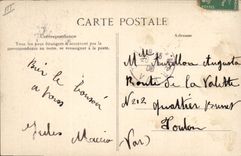 III
CARTE POSTALE
Correspondance
Adresse
Tous les pays étrangers n'acceptent pas la
correspondance au recto, se renseigner à la poste
Melle Augusta
Route de la Valette
N° 212 quartier
Toulon
Var)
Bien le bonsoir
à vous
Jules